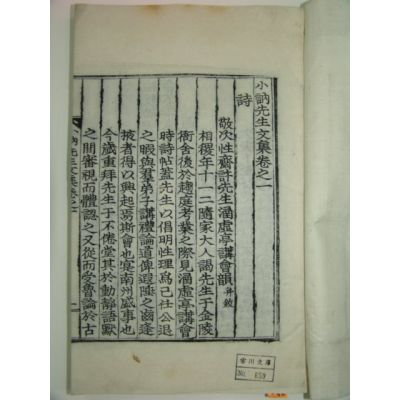 小訥先生文集卷之一
詩
敬次性齋許先生涵虛亭講會韻 幷敘
相稷年十一二隨家大人謁先生于金陵
衙舍後於趨庭考業之際見涵虛亭講會
時詩帖蓋先生以倡明性理爲己任公退
之暇與羣弟子講禮論道俾遐陬之齒逢
掖者得以興起焉斯會也寔南州盛事也
今歲重拜先生于不倦堂其於動靜語默
之間審視而體認之又從而受魯論於古
小訥先生文集卷之一
一
雷川文庫
No. 159